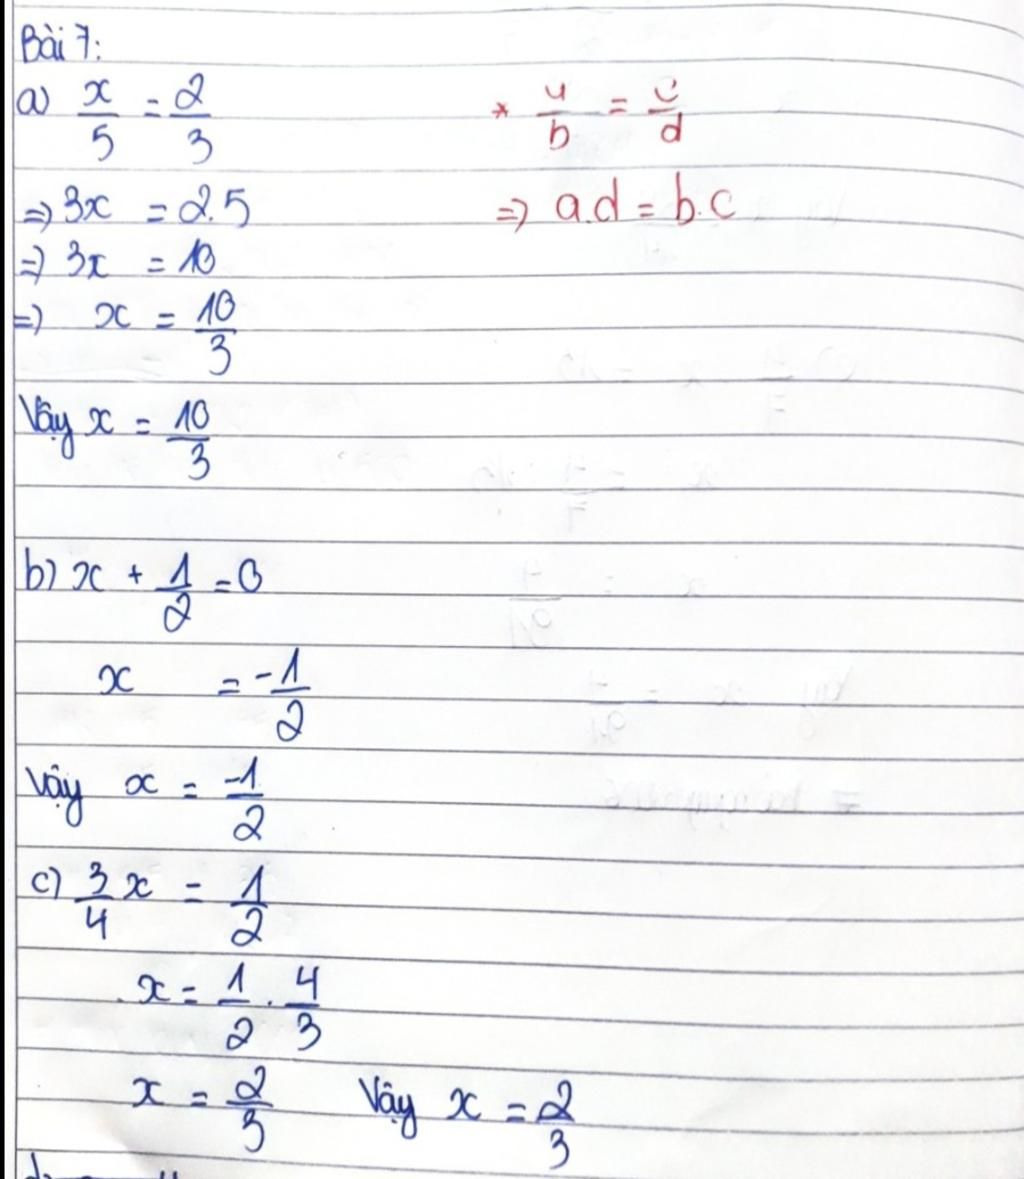 Bài 7:
a) x/5 = 2/3
* a/b = c/d
=> 3x = 2.5
=> a.d = b.c
=> 3x = 10
=> x = 10/3
Vậy x = 10/3
b) x + 1/2 = 0
x = -1/2
Vậy x = -1/2
c) 3/4 x = 1/2
x = 1/2 . 4/3
x = 2/3 Vậy x = 2/3